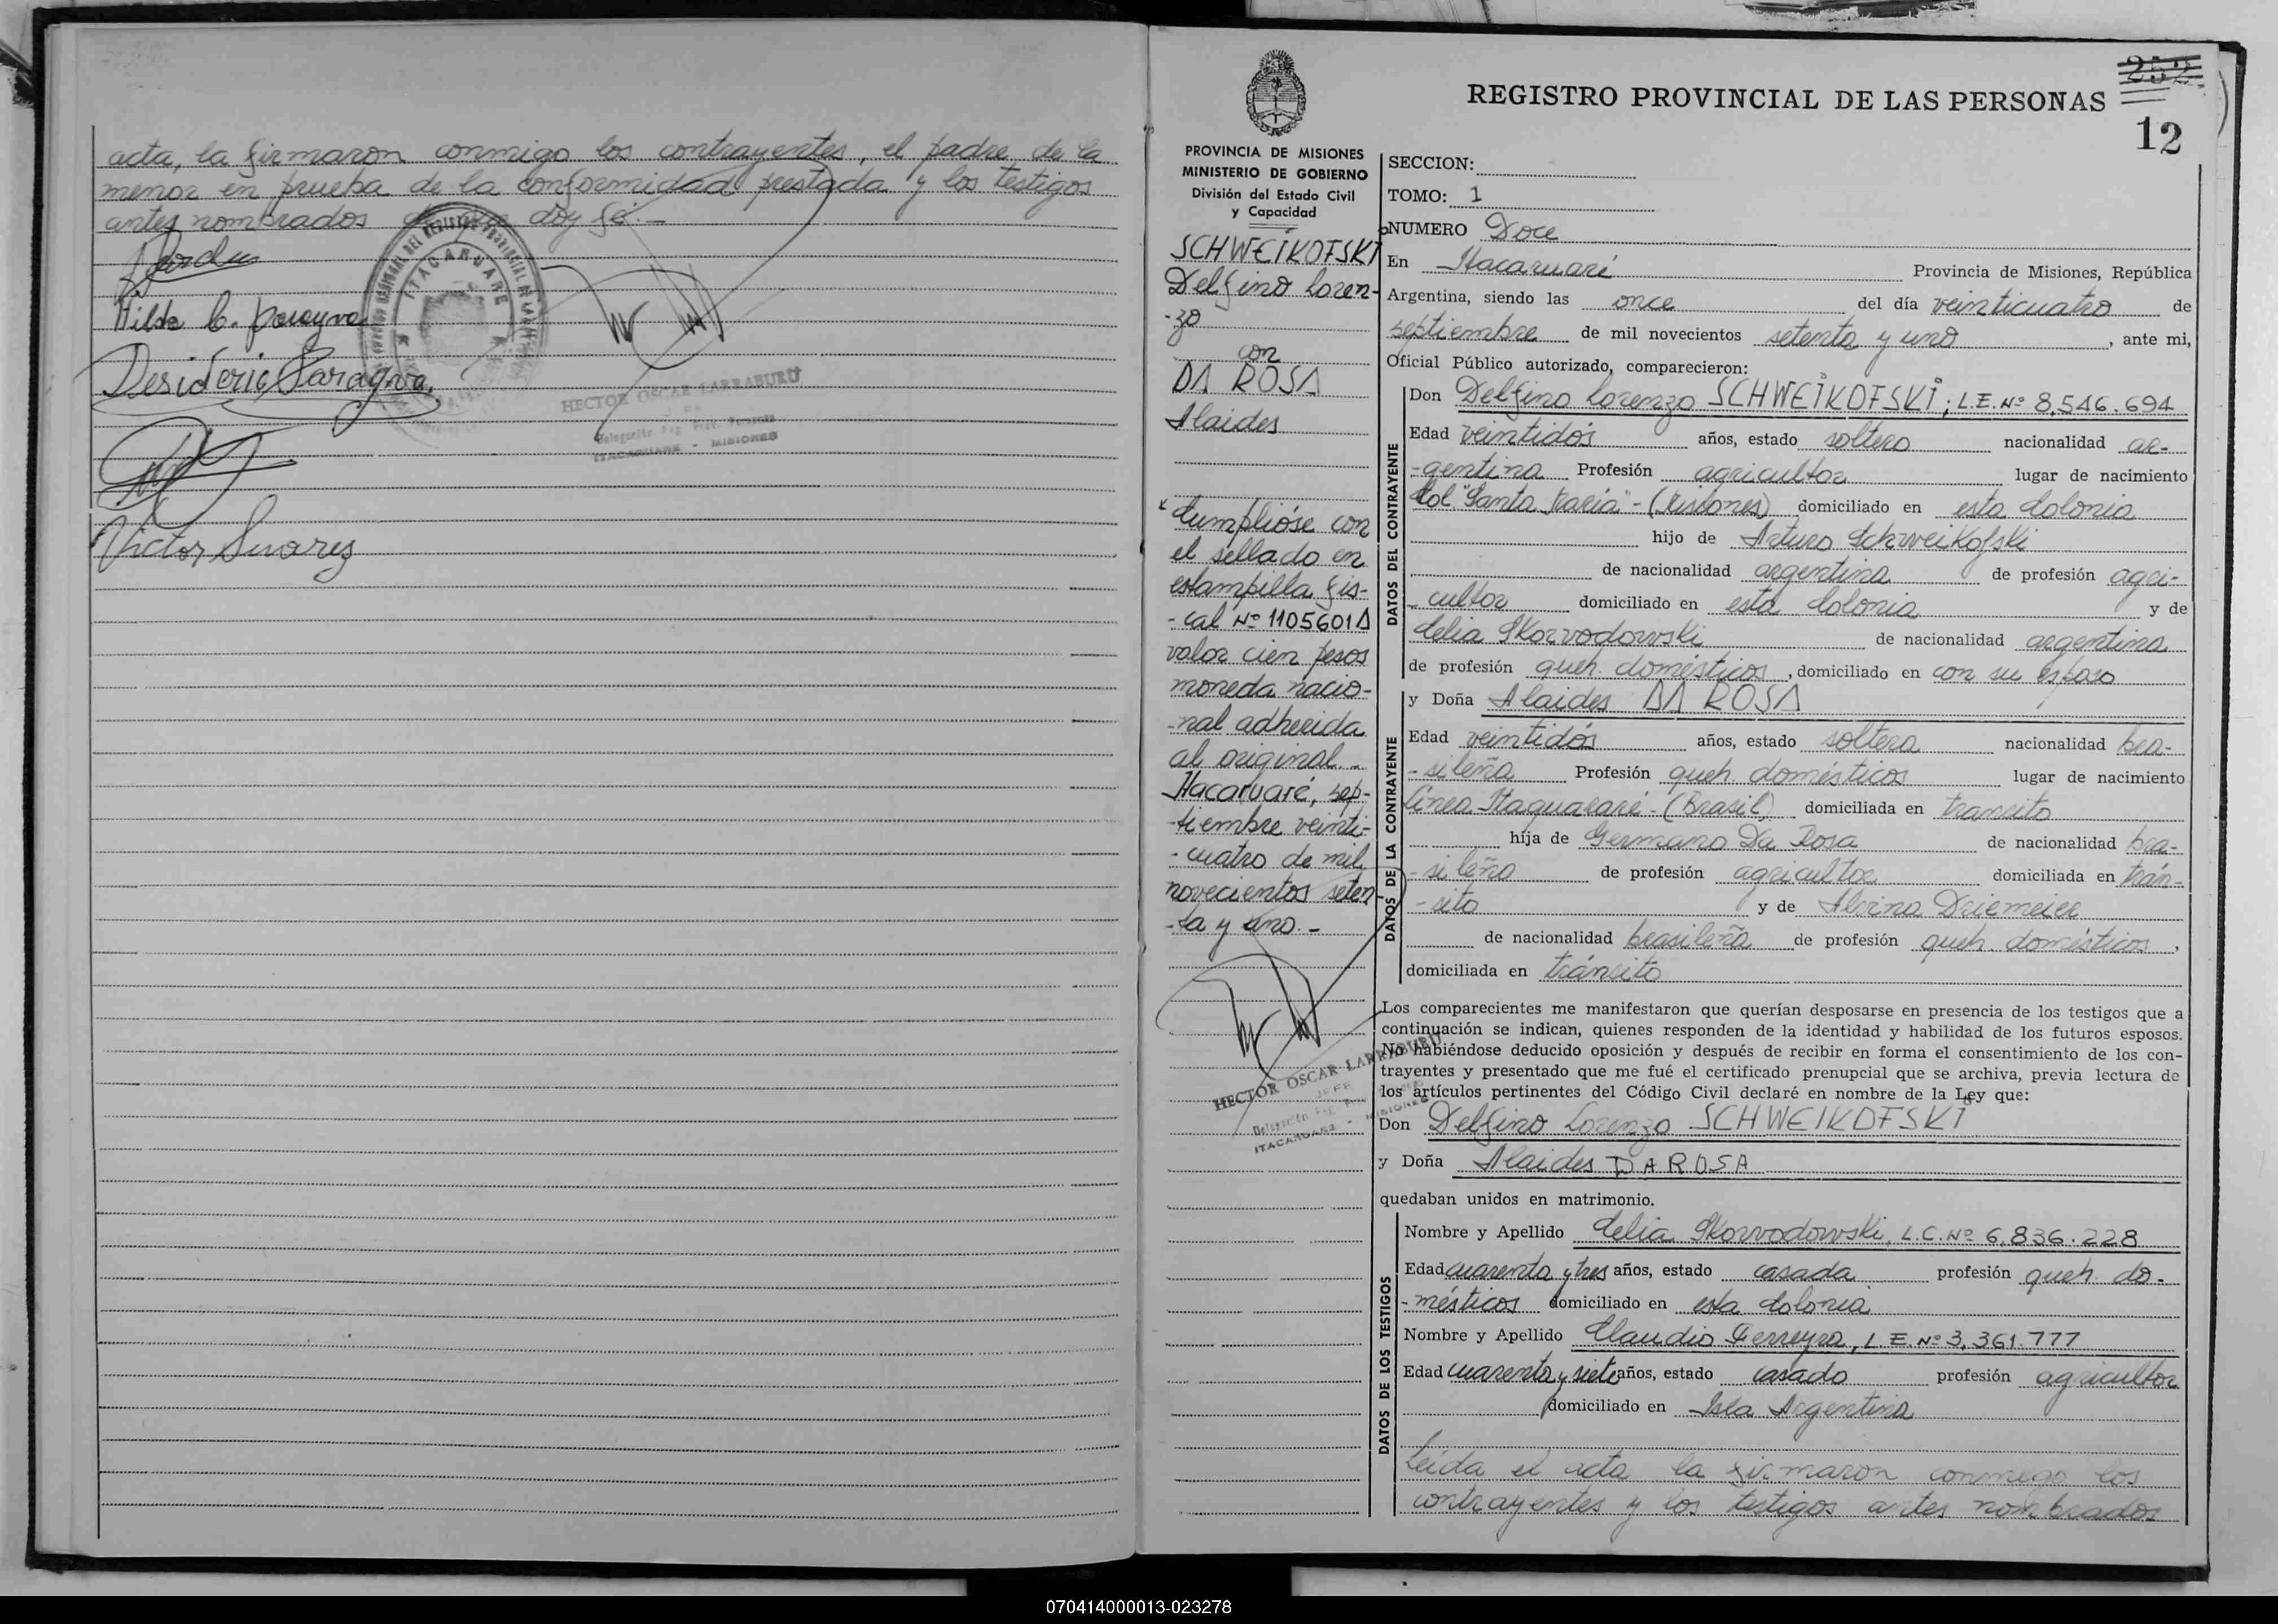 acta, la firmaron conmigo los contrayentes, el padre de la
menor en prueba de la conformidad prestada y los testigos
antes nombrados de que doy fé.-
Hilda C. Pereyra
Desiderio Paragiva
Victor Suarez
ITACARUARE
HECTOR OSCAR LARRABURU
JEFE
ITACARUARE - MISIONES
252
REGISTRO PROVINCIAL DE LAS PERSONAS
12
PROVINCIA DE MISIONES
MINISTERIO DE GOBIERNO
División del Estado Civil
y Capacidad
SCHWEIKOFSKI
Delfino Loren-
-zo
con
DA ROSA
Alaides
Cumplióse con
el sellado en
estampilla fis-
-cal Nº 1105601A
valor cien pesos
moneda nacio-
-nal adherida
al original.-
Itacaruaré, sep-
-tiembre veinti-
-cuatro de mil
novecientos seten-
-ta y uno.-
HECTOR OSCAR LARRABURU
JEFE
ITACARUARE - MISIONES
SECCION:
TOMO: 1
NUMERO Doce
En Itacaruaré Provincia de Misiones, República
Argentina, siendo las once del día veinticuatro de
septiembre de mil novecientos setenta y uno, ante mi,
Oficial Público autorizado, comparecieron:
DATOS DEL CONTRAYENTE
Don Delfino Lorenzo SCHWEIKOFSKI; L.E.Nº 8.546.694
Edad veintidós años, estado soltero nacionalidad ar-
-gentina Profesión agricultor lugar de nacimiento
Col. "Santa María"-(Misiones) domiciliado en esta Colonia
hijo de Arturo Schweikofski
de nacionalidad argentina de profesión agri-
-cultor domiciliado en esta Colonia y de
Celia Skorvodowski de nacionalidad argentina
de profesión queh. domésticos, domiciliado en con su esposo
DATOS DE LA CONTRAYENTE
y Doña Alaides DA ROSA
Edad veintidós años, estado soltera nacionalidad bra-
-sileña Profesión queh. domésticos lugar de nacimiento
Línea Itaquararé-(Brasil) domiciliada en transito
hija de Germano Da Rosa de nacionalidad bra-
-sileño de profesión agricultor domiciliada en trán-
-sito y de Alvina Driemeier
de nacionalidad brasileña de profesión queh. domésticos,
domiciliada en tránsito
Los comparecientes me manifestaron que querían desposarse en presencia de los testigos que a
continuación se indican, quienes responden de la identidad y habilidad de los futuros esposos.
No habiéndose deducido oposición y después de recibir en forma el consentimiento de los con-
trayentes y presentado que me fué el certificado prenupcial que se archiva, previa lectura de
los artículos pertinentes del Código Civil declaré en nombre de la Ley que:
Don Delfino Lorenzo SCHWEIKOFSKI
y Doña Alaides DA ROSA
quedaban unidos en matrimonio.
DATOS DE LOS TESTIGOS
Nombre y Apellido Celia Skorvodowski, L.C.Nº 6.836.228
Edad cuarenta y tres años, estado casada profesión queh. do-
-mésticos domiciliado en esta Colonia
Nombre y Apellido Claudio Ferreyra, L.E.Nº 3.361.777
Edad cuarenta y siete años, estado casado profesión agricultor
domiciliado en Isla Argentina
Leída el acta la firmaron conmigo los
contrayentes y los testigos antes nombrados
070414000013-023278